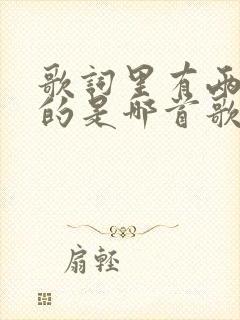 歌詞里有兩
的是哪首歌
扇輕